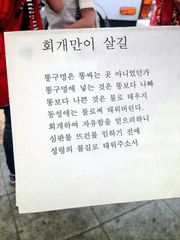 회개만이 살길
똥구멍은 똥싸는 곳 아니었던가
똥구멍에 넣는 것은 똥보다 나빠
똥보다 나쁜 것은 불로 태우지
동성애는 불로써 태워버린다.
회개하여 자유함을 얻으려하니
심판불 뜨건불 임하기 전에
성령의 불길로 태워주소서